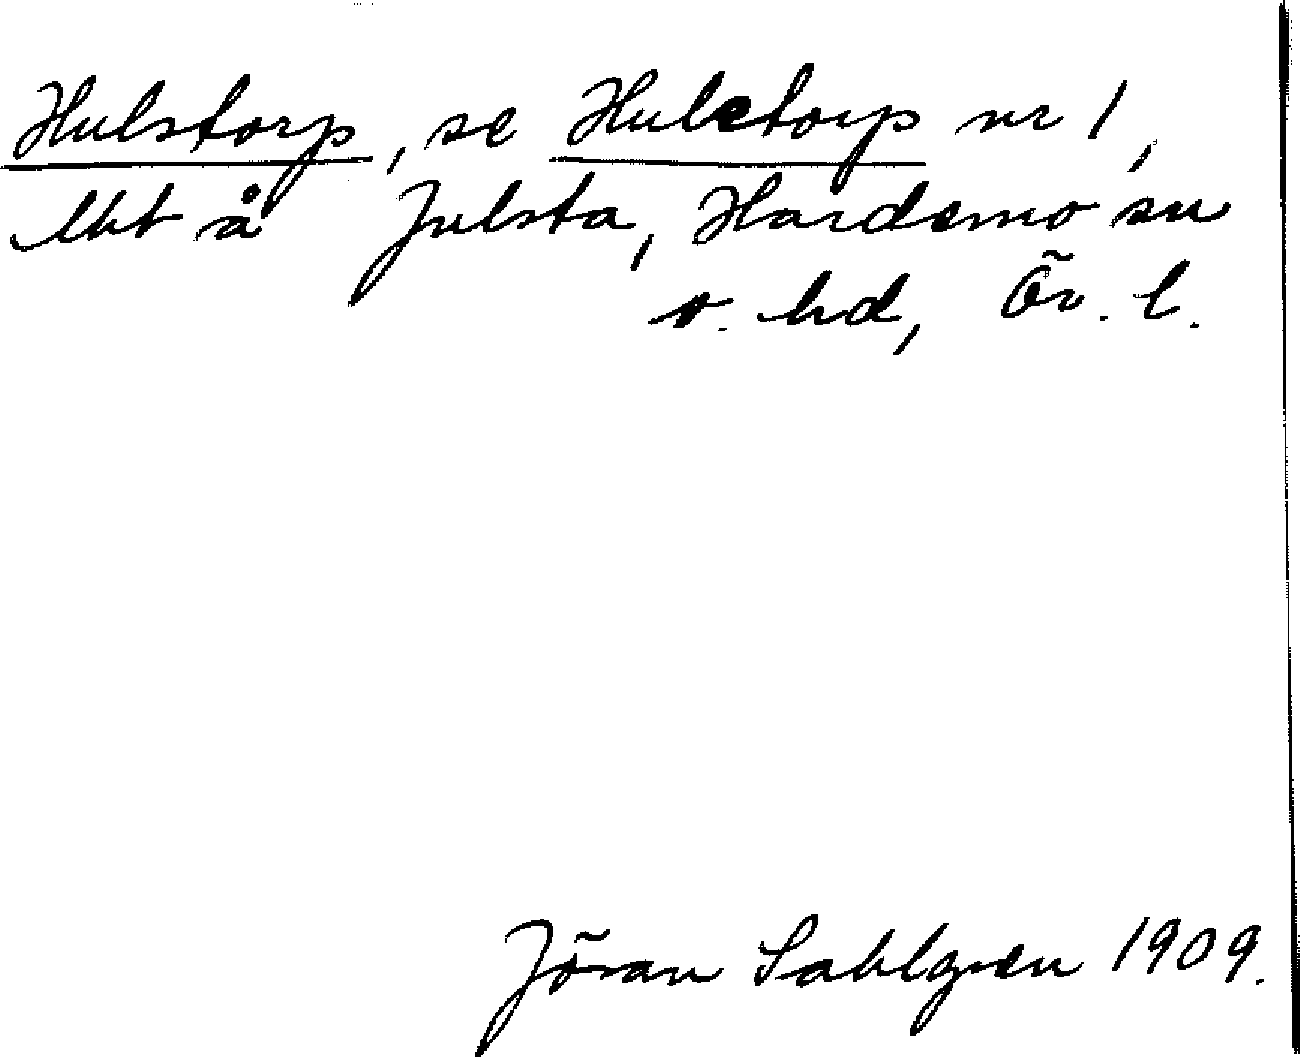 Hulstorp, se Huletorp nr 1,
lht å Julsta, Hardemo sn
o. hd, Ör. l.
Jöran Sahlgren 1909.